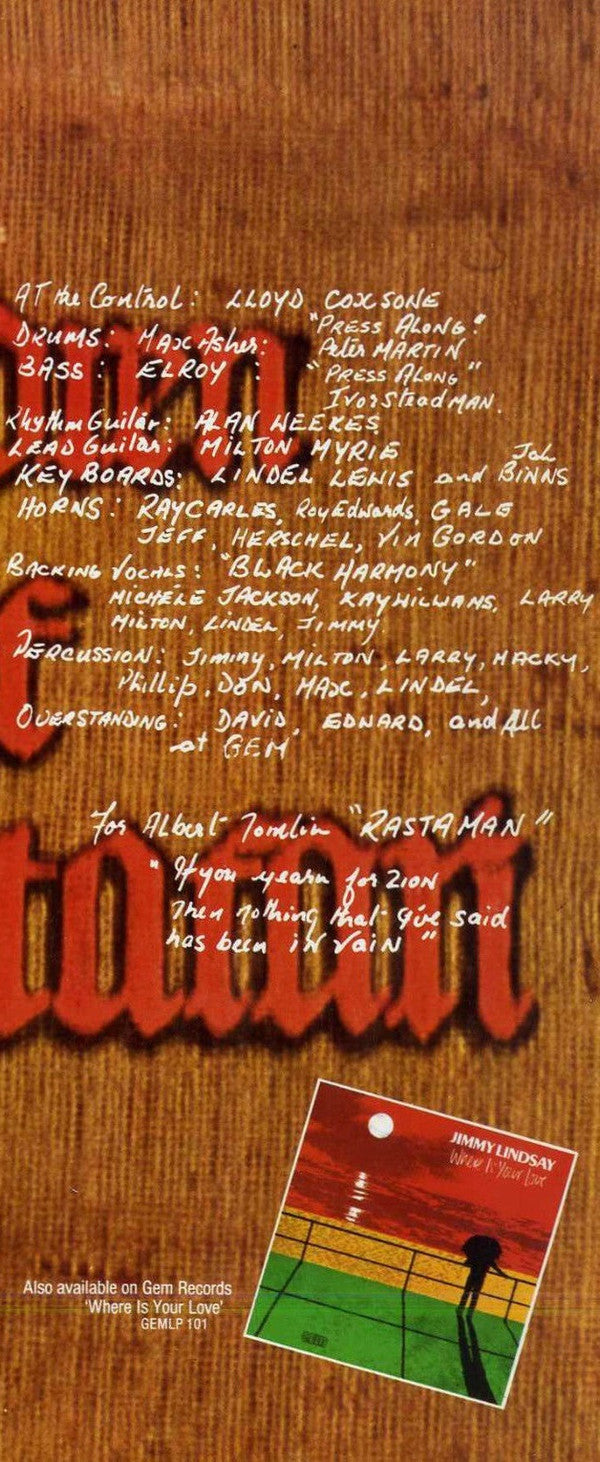 AT the Control: LLOYD COXSONE
DRUMS: MAX Asher: "PRESS ALONG"
Peter MARTIN
BASS: ELROY: "PRESS ALONG"
Ivor Steadman.
Rhythm Guitar: ALAN WEEKES
LEAD Guitar: MILTON MYRIE
KEY BOARDS: LINDEL LEWIS and Jah BINNS
HORNS: RAY CARLES, Roy Edwards, GALE
JEFF, HERSCHEL, VIN GORDON
BACKING VOCALS: "BLACK HARMONY"
MICHÉLE JACKSON, KAY WILLIAMS, LARRY
MILTON, LINDEL, JIMMY.
PERCUSSION: Jimmy, MILTON, LARRY, MACKY,
Phillip, DON, MAX, LINDEL,
OVERSTANDING: DAVID, EDWARD, and All
at GEM
For Albert Tomlin "RASTAMAN"
"If you yearn for ZION
Then nothing that I've said
has been in vain"
taran
JIMMY LINDSAY
Where Is Your Love
Also available on Gem Records
'Where Is Your Love'
GEMLP 101